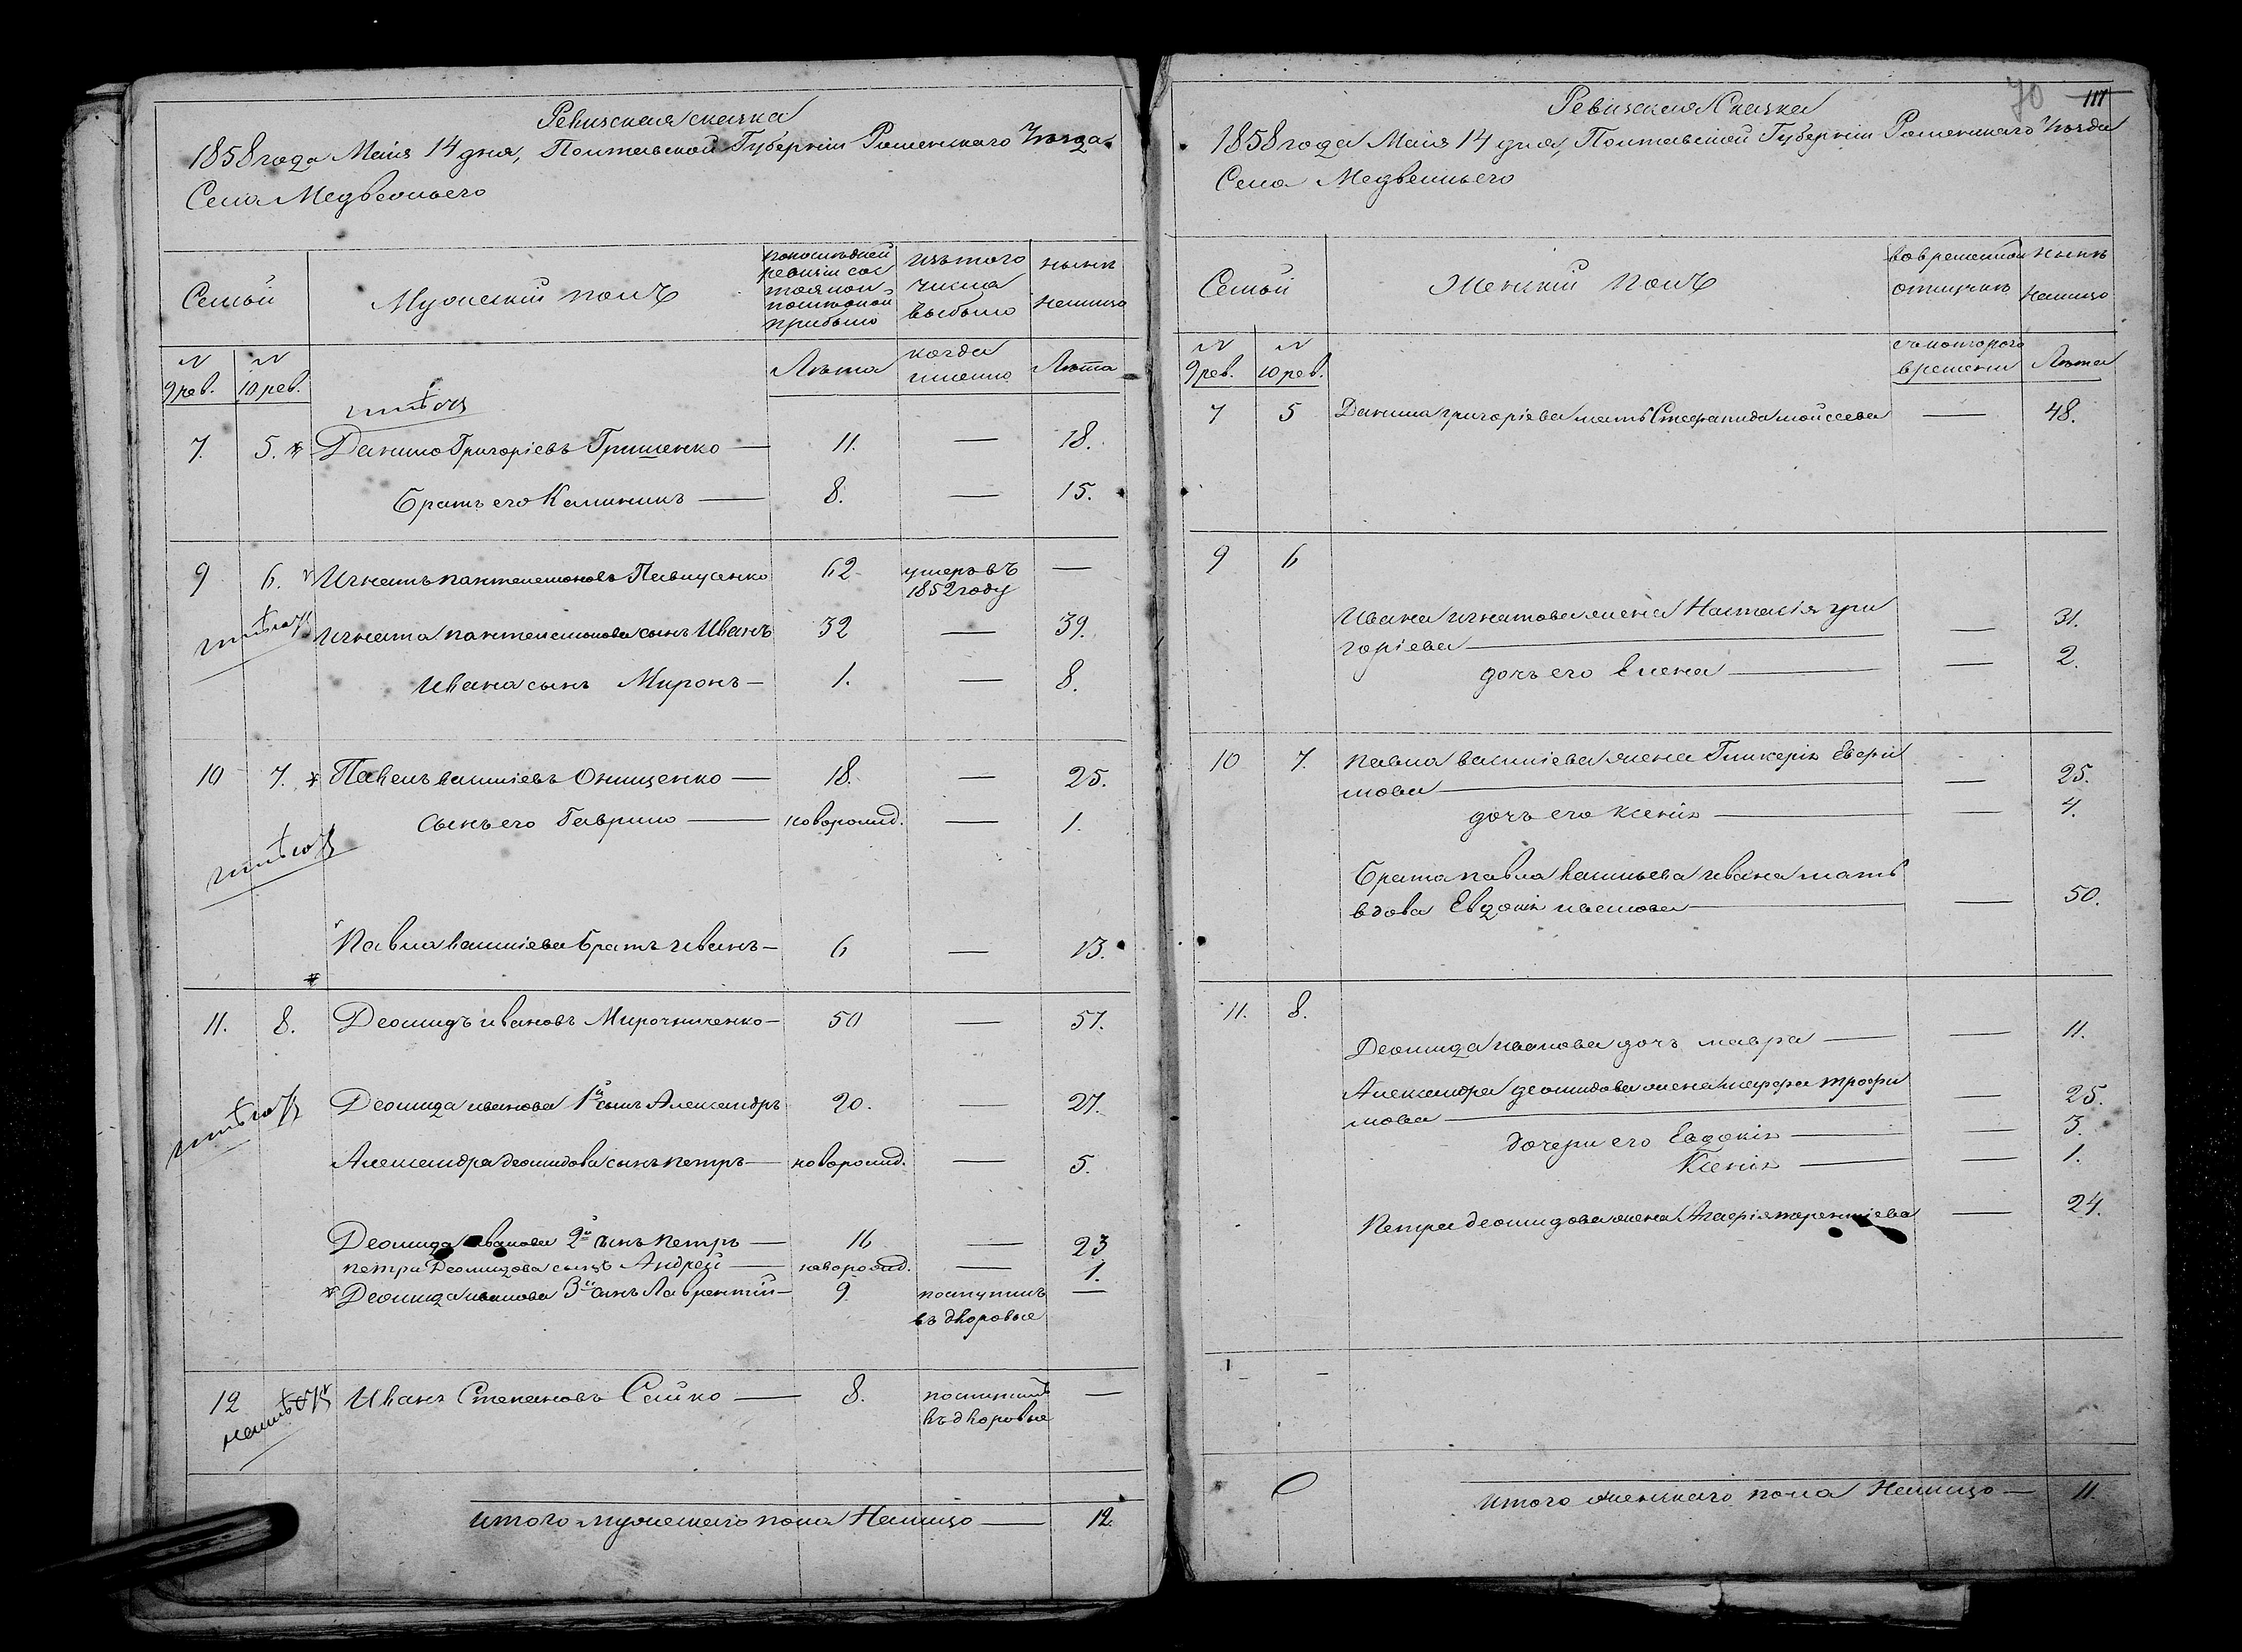 Ревизская сказка
1858 года Маія 14 дня, Полтавской Губерніи Роменскаго Уезда
Села Медвежьего
Семьи
Мужескій полъ
по последней
ревизіи сос
тояло и
после оной
прибыло
изъ того
числа
выбыло
ныне
на лицо
N
9 рев.
N
10 рев.
Лѣта
когда
именно
Лѣта
7.
5.
Данило Григоріевъ Гришенко —
11.
—
18.
Братъ его Калиникъ —
8.
—
15.
9
6.
Игнатъ пантелемоновъ Павлусенко
62
умеръ въ
1852 году
—
Игната пантелемонова сынъ Иванъ
32
—
39.
Ивана сынъ Миронъ —
1.
—
8.
10
7.
Павелъ василіевъ Онищенко —
18.
—
25.
сынъ его Гаврило —
новорожд.
—
1.
Павла василіева братъ иванъ —
6
—
13.
11.
8.
Деомидъ ивановъ Мирочниченко —
50
—
57.
Деомида иванова 1й сынъ Александръ
20.
—
27.
Александра деомидова сынъ петръ —
новорожд.
—
5.
Деомида иванова 2й сынъ петръ —
16
—
23
петра Деомидова сынъ Андрей —
новорожд.
—
1.
Деомида иванова 3й сынъ Лаврентій —
9
поступилъ
въ дворовые
—
12
Иванъ Степановъ Сайко —
8.
поступилъ
въ дворовые
—
итого мужескаго пола На лицо —
12.
70
111
Ревизская Сказка
1858 года Маія 14 дня, Полтавской Губерніи Роменскаго Уезда
Села Медвежьего
Семьи
Женскій полъ
во временной
отлучке
ныне
на лицо
N
9 рев.
N
10 рев.
съ котораго
времени
Лѣта
7
5
Данила григоріева мать Стефанида мойсеева
—
48.
9
6
Ивана игнатова жена Настасія гри
горіева —
—
31.
дочь его Елена —
—
2.
10
7.
павла василіева жена Гликерія Евфи
мова —
—
25.
дочь его ксенія —
—
4.
Брата павла васильева ивана мать
вдова Евдокія иванова —
—
50.
11.
8.
Деомида иванова дочь мавра —
—
11.
Александра деомидова жена марфа трофи
мова —
—
25.
дочери его Евдокія —
—
3.
Ксенія —
—
1.
Петра деомидова жена Агафія терентіева
—
24.
итого женскаго пола На лицо —
11.